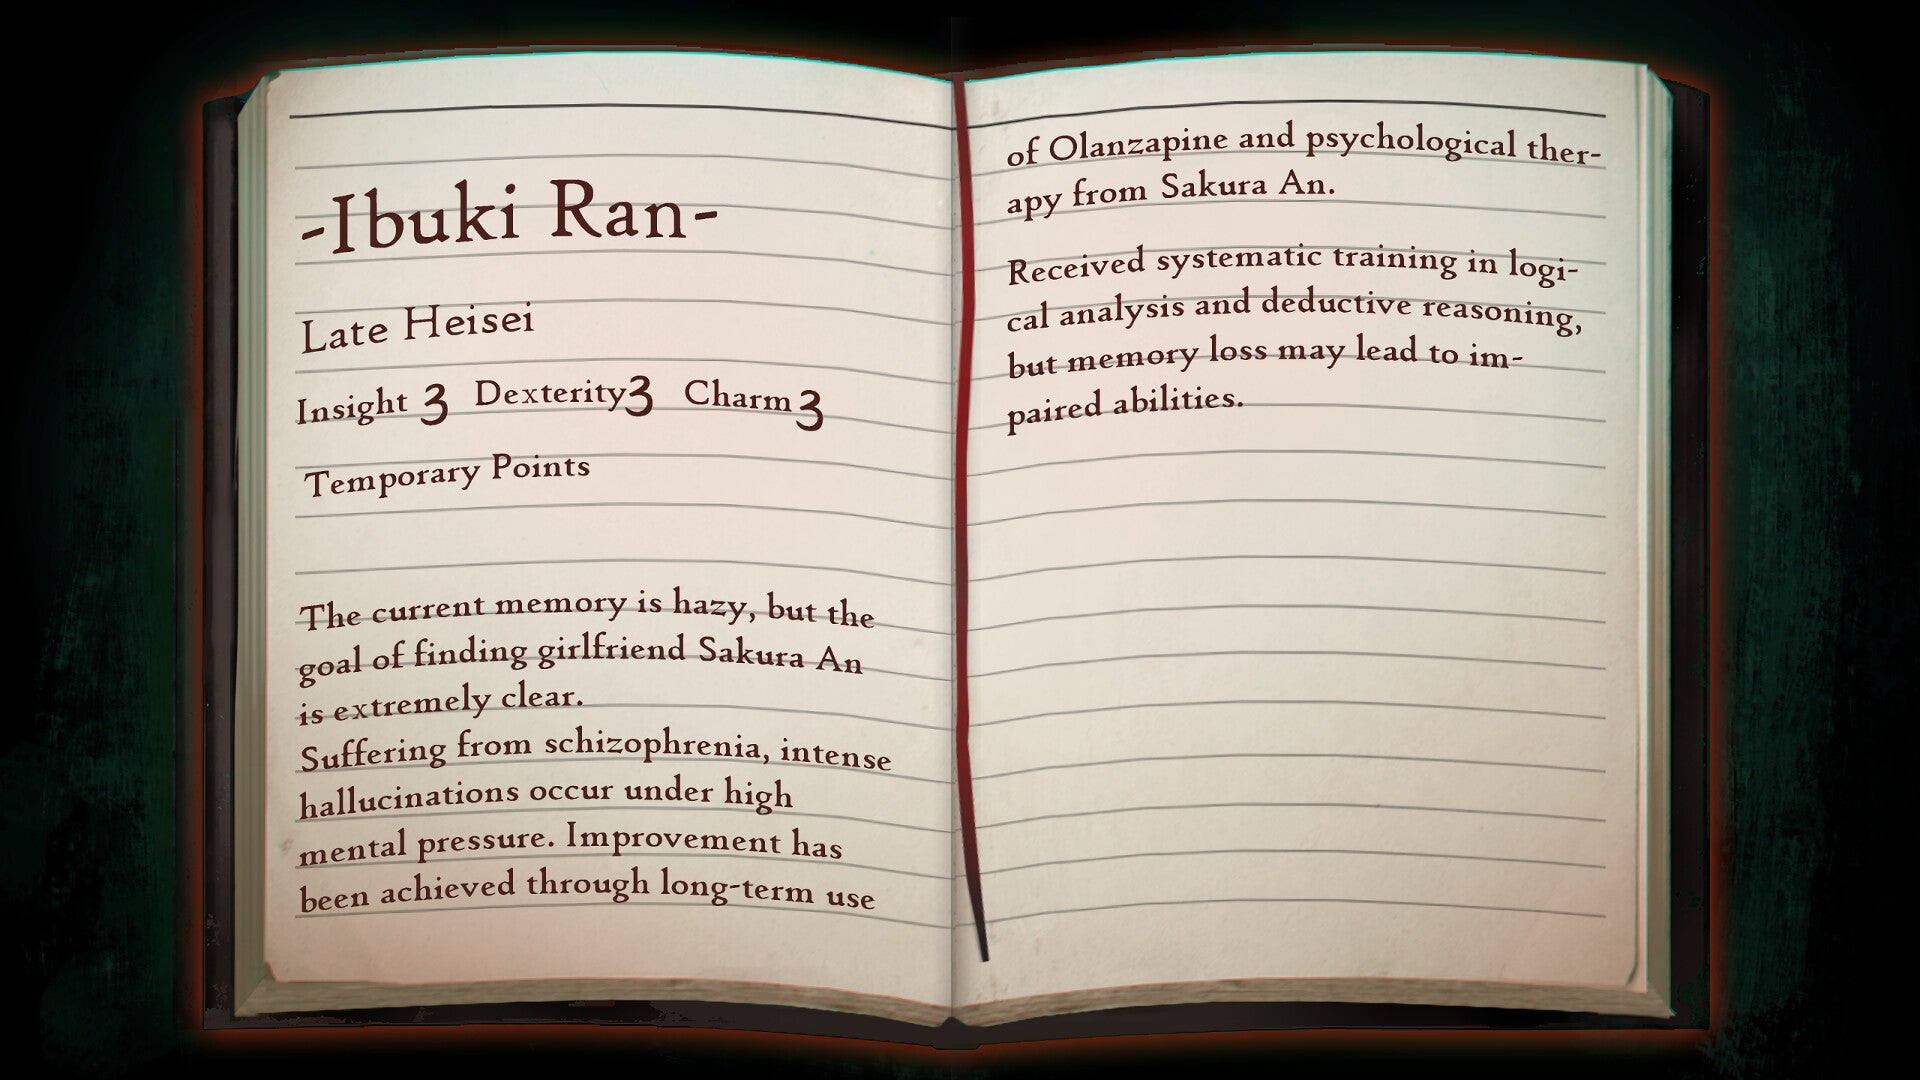 -Ibuki Ran-
Late Heisei
Insight 3 Dexterity 3 Charm 3
Temporary Points
The current memory is hazy, but the
goal of finding girlfriend Sakura An
is extremely clear.
Suffering from schizophrenia, intense
hallucinations occur under high
mental pressure. Improvement has
been achieved through long-term use
of Olanzapine and psychological ther-
apy from Sakura An.
Received systematic training in logi-
cal analysis and deductive reasoning,
but memory loss may lead to im-
paired abilities.